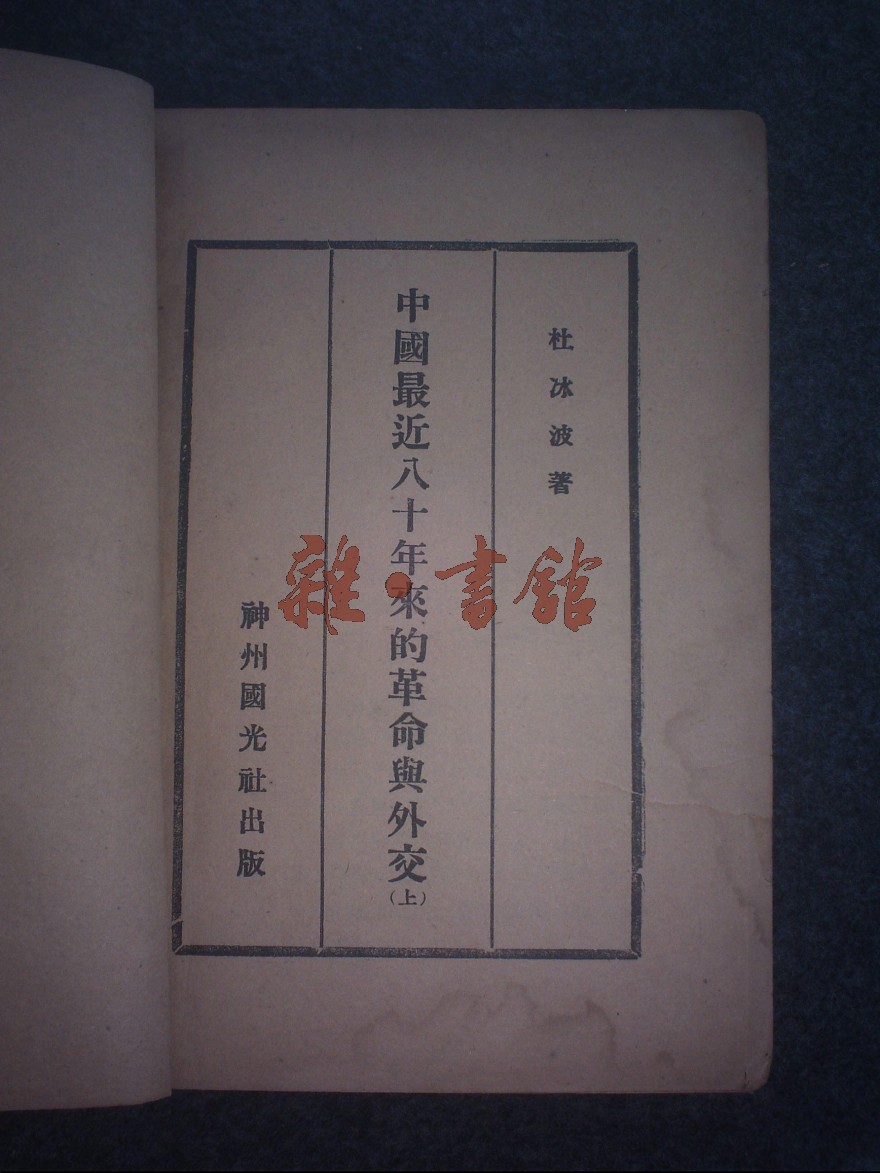 杜冰波著
中國最近八十年來的革命與外交
(上)
神州國光社出版
雜·書館